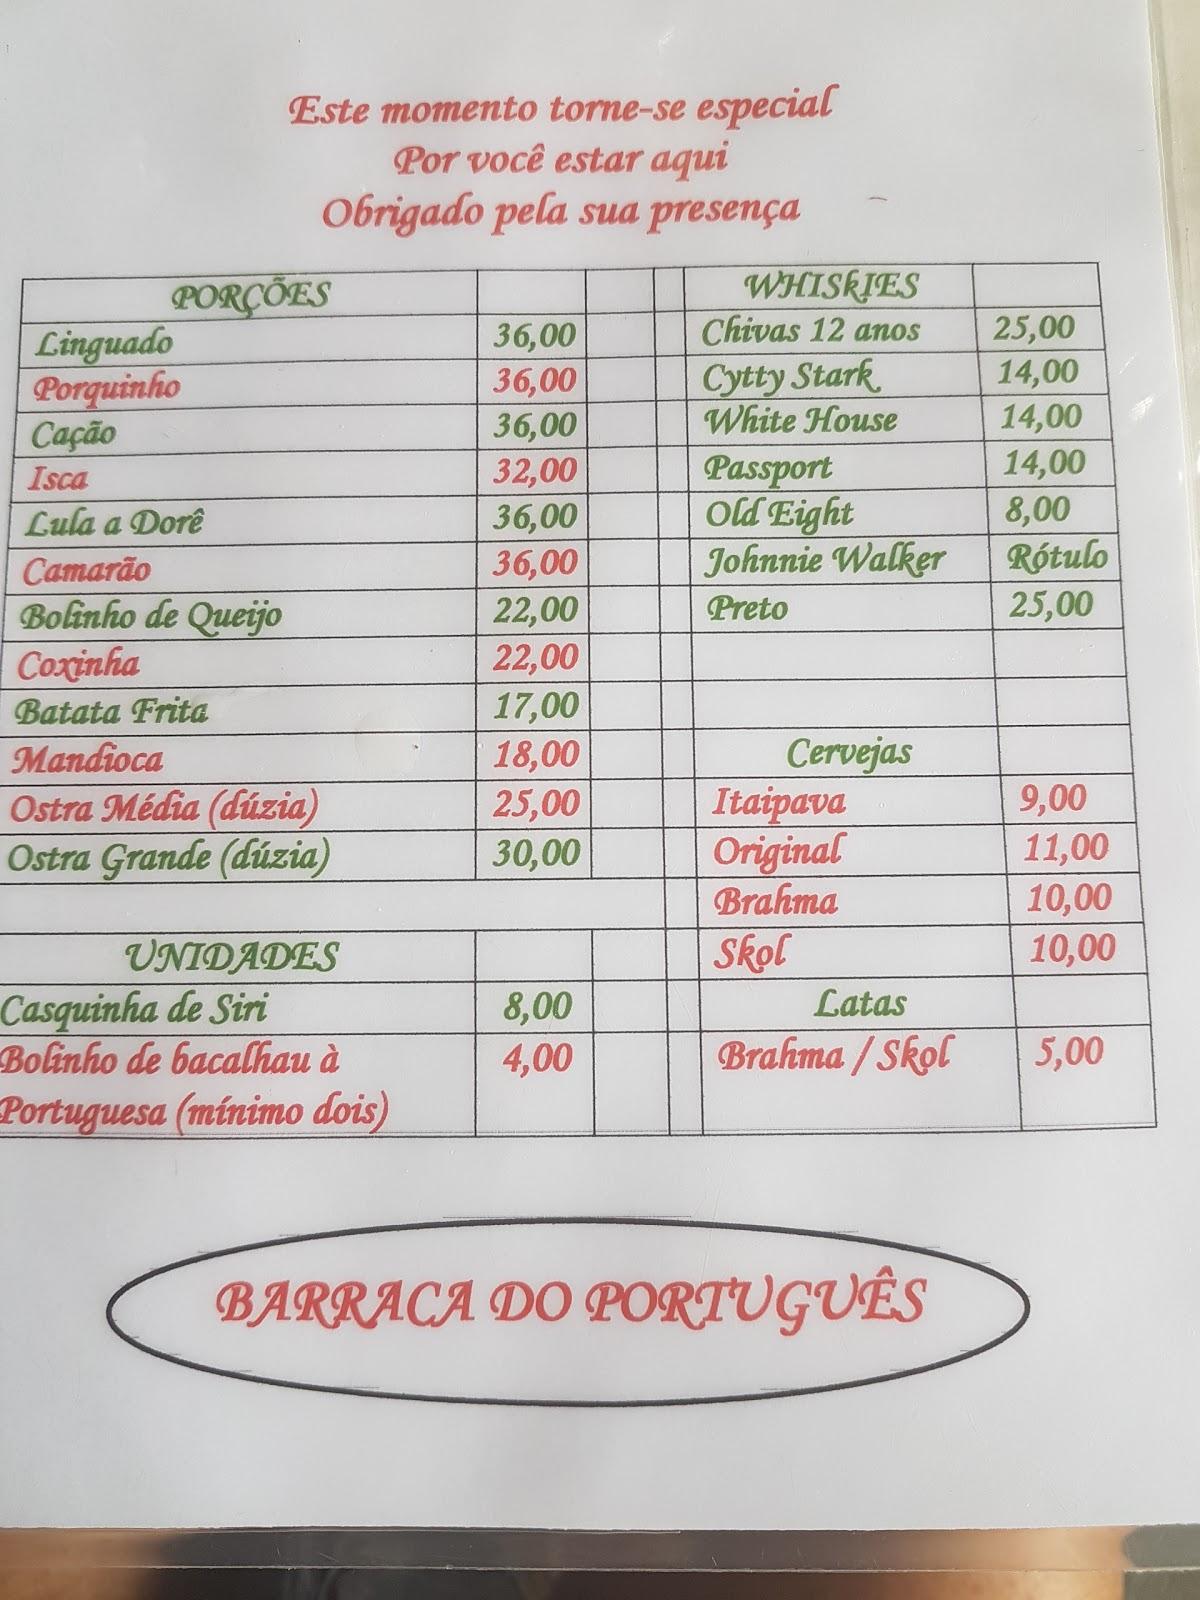 Este momento torne-se especial
Por você estar aqui
Obrigado pela sua presença
PORÇÕES
Linguado 36,00
Porquinho 36,00
Cação 36,00
Isca 32,00
Lula a Dorê 36,00
Camarão 36,00
Bolinho de Queijo 22,00
Coxinha 22,00
Batata Frita 17,00
Mandioca 18,00
Ostra Média (dúzia) 25,00
Ostra Grande (dúzia) 30,00
UNIDADES
Casquinha de Siri 8,00
Bolinho de bacalhau à 4,00
Portuguesa (mínimo dois)
WHISkIES
Chivas 12 anos 25,00
Cytty Stark 14,00
White House 14,00
Passport 14,00
Old Eight 8,00
Johnnie Walker Rótulo
Preto 25,00
Cervejas
Itaipava 9,00
Original 11,00
Brahma 10,00
Skol 10,00
Latas
Brahma / Skol 5,00
BARRACA DO PORTUGUÊS